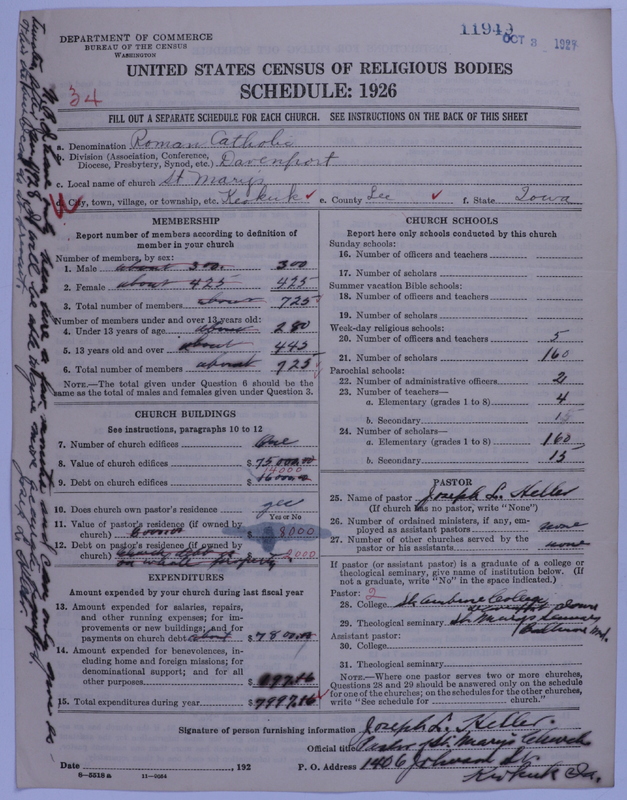 11949
OCT 3 1927
DEPARTMENT OF COMMERCE
BUREAU OF THE CENSUS
WASHINGTON
UNITED STATES CENSUS OF RELIGIOUS BODIES
SCHEDULE: 1926
34
FILL OUT A SEPARATE SCHEDULE FOR EACH CHURCH. SEE INSTRUCTIONS ON THE BACK OF THIS SHEET
a. Denomination Roman Catholic
b. Division (Association, Conference,
Diocese, Presbytery, Synod, etc.) Davenport
c. Local name of church St Mary's
d. City, town, village, or township, etc. Keokuk e. County Lee f. State Iowa
MEMBERSHIP
Report number of members according to definition of
member in your church
Number of members, by sex:
1. Male about 300 300
2. Female about 425 425
3. Total number of members about 725
Number of members under and over 13 years old:
4. Under 13 years of age about 280
5. 13 years old and over about 445
6. Total number of members about 725
NOTE.—The total given under Question 6 should be the
same as the total of males and females given under Question 3.
CHURCH BUILDINGS
See instructions, paragraphs 10 to 12
7. Number of church edifices One
8. Value of church edifices $ 75000.00
14000
9. Debt on church edifices $ 16000.00
10. Does church own pastor's residence yes
Yes or No
11. Value of pastor's residence (if owned by
church) $ 8000
12. Debt on pastor's residence (if owned by
church) $ 2000
on whole property
EXPENDITURES
Amount expended by your church during last fiscal year
13. Amount expended for salaries, repairs,
and other running expenses; for im-
provements or new buildings; and for
payments on church debt about $ 7800.00
14. Amount expended for benevolences, in-
cluding home and foreign missions; for
denominational support; and for all
other purposes $
15. Total expenditures during year $ 7997.16
CHURCH SCHOOLS
Report here only schools conducted by this church
Sunday schools:
16. Number of officers and teachers
17. Number of scholars
Summer vacation Bible schools:
18. Number of officers and teachers
19. Number of scholars
Week-day religious schools:
20. Number of officers and teachers 5
21. Number of scholars 160
Parochial schools:
22. Number of administrative officers 2
23. Number of teachers—
a. Elementary (grades 1 to 8) 4
b. Secondary
24. Number of scholars—
a. Elementary (grades 1 to 8) 160
b. Secondary 15
PASTOR
25. Name of pastor Joseph L. Heller
(If church has no pastor, write "None")
26. Number of ordained ministers, if any, em-
ployed as assistant pastors none
27. Number of other churches served by the
pastor or his assistants none
If pastor (or assistant pastor) is a graduate of a college or
theological seminary, give name of institution below. (If
not a graduate, write "No" in the space indicated.)
Pastor: 2
28. College St. Ambrose College
Davenport Iowa
29. Theological seminary St. Marys Seminary
Baltimore Md.
Assistant pastor:
30. College
31. Theological seminary
NOTE.—Where one pastor serves two or more churches,
Questions 28 and 29 should be answered only on the schedule
for one of the churches; on the schedules for the other churches,
write "See schedule for church."
Signature of person furnishing information Joseph L. Heller.
Official title Pastor St. Mary's Church
Date , 192 P. O. Address 1406 Johnson St
Keokuk Ia.
8-5518a 11-9054
N.B. I have only been here a few months and can only give